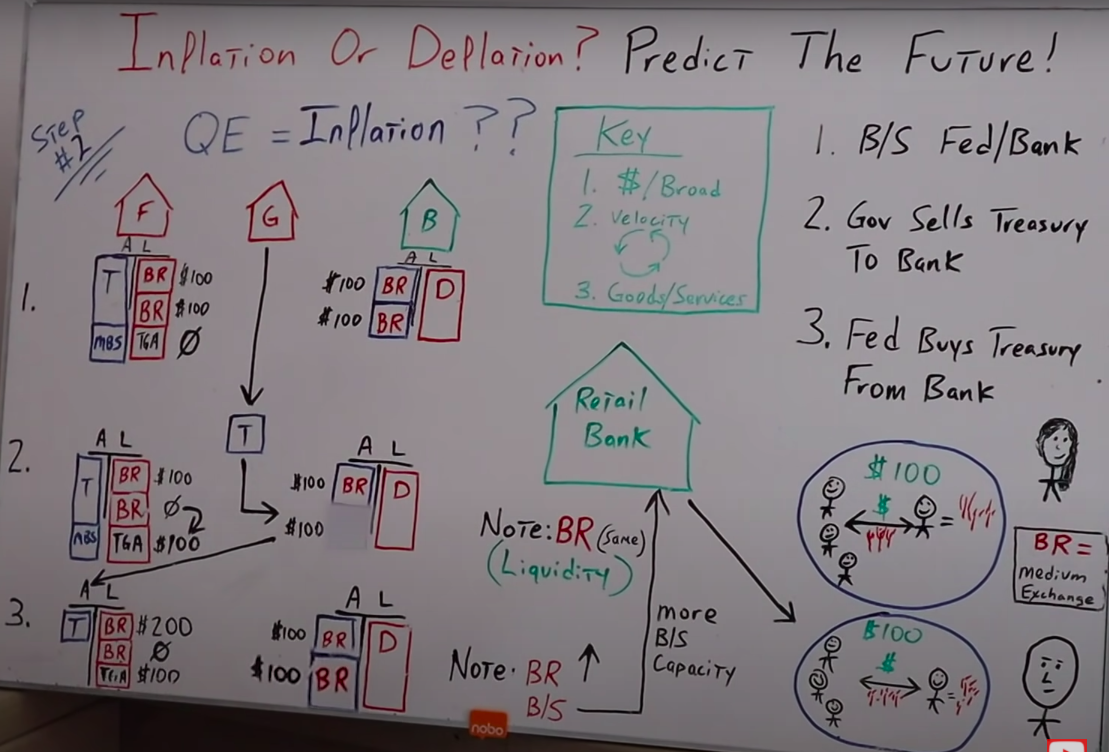 Inflation Or Deflation? Predict The Future!
Step #2
QE = Inflation ??
F
G
B
A L
T
BR $100
BR $100
MBS
TGA Ø
1.
A L
$100 BR
$100 BR
D
Key
1. $/Broad
2. Velocity
3. Goods/Services
1. B/S Fed/Bank
2. Gov Sells Treasury
To Bank
3. Fed Buys Treasury
From Bank
2.
A L
T
BR $100
BR Ø
MBS
TGA $100
T
A L
$100 BR
$100
D
Retail
Bank
Note: BR (same)
(Liquidity)
3.
A L
T
BR $200
BR Ø
TGA $100
A L
$100 BR
$100 BR
D
Note: BR
B/S
more
B/S
Capacity
$100
$
=
$100
$
=
BR =
Medium
Exchange
nobo